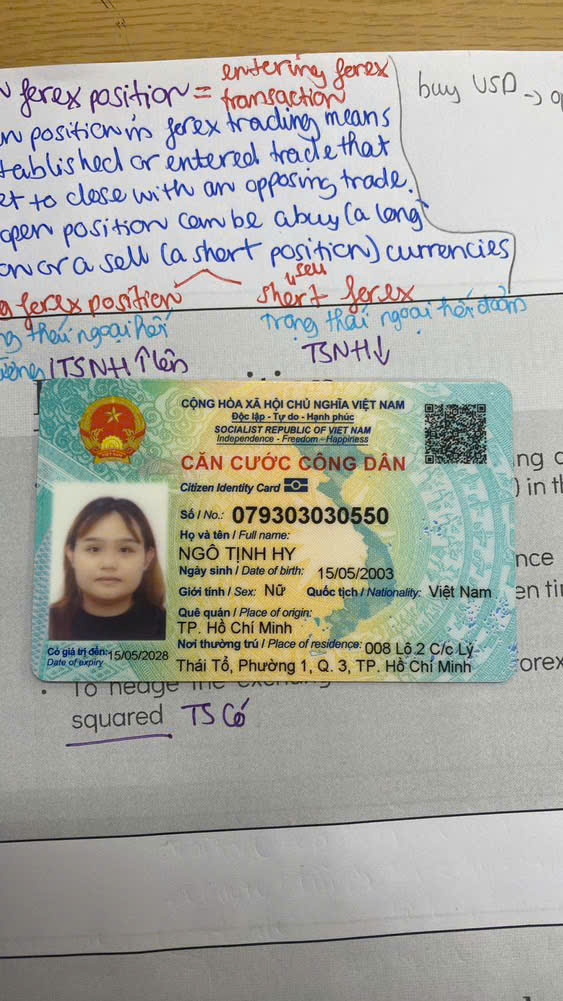 forex position = entering forex
transaction
buy USD →
position in forex trading means
established or entered trade that
to close with an opposing trade.
open position can be a buy (a long
or a sell (a short position) currencies
sell
forex position short forex
thái ngoại hối trạng thái ngoại hối đoản
TSNH ↑ lên TSNH ↓
CỘNG HÒA XÃ HỘI CHỦ NGHĨA VIỆT NAM
Độc lập - Tự do - Hạnh phúc
SOCIALIST REPUBLIC OF VIET NAM
Independence - Freedom - Happiness
CĂN CƯỚC CÔNG DÂN
Citizen Identity Card
Số / No.: 079303030550
Họ và tên / Full name:
NGÔ TỊNH HY
Ngày sinh / Date of birth: 15/05/2003
Giới tính / Sex: Nữ Quốc tịch / Nationality: Việt Nam
Quê quán / Place of origin:
TP. Hồ Chí Minh
Nơi thường trú / Place of residence: 008 Lô 2 C/c Lý
Thái Tổ, Phường 1, Q. 3, TP. Hồ Chí Minh
Có giá trị đến: 15/05/2028
Date of expiry
) in th
en
To hedge
squared TS Có